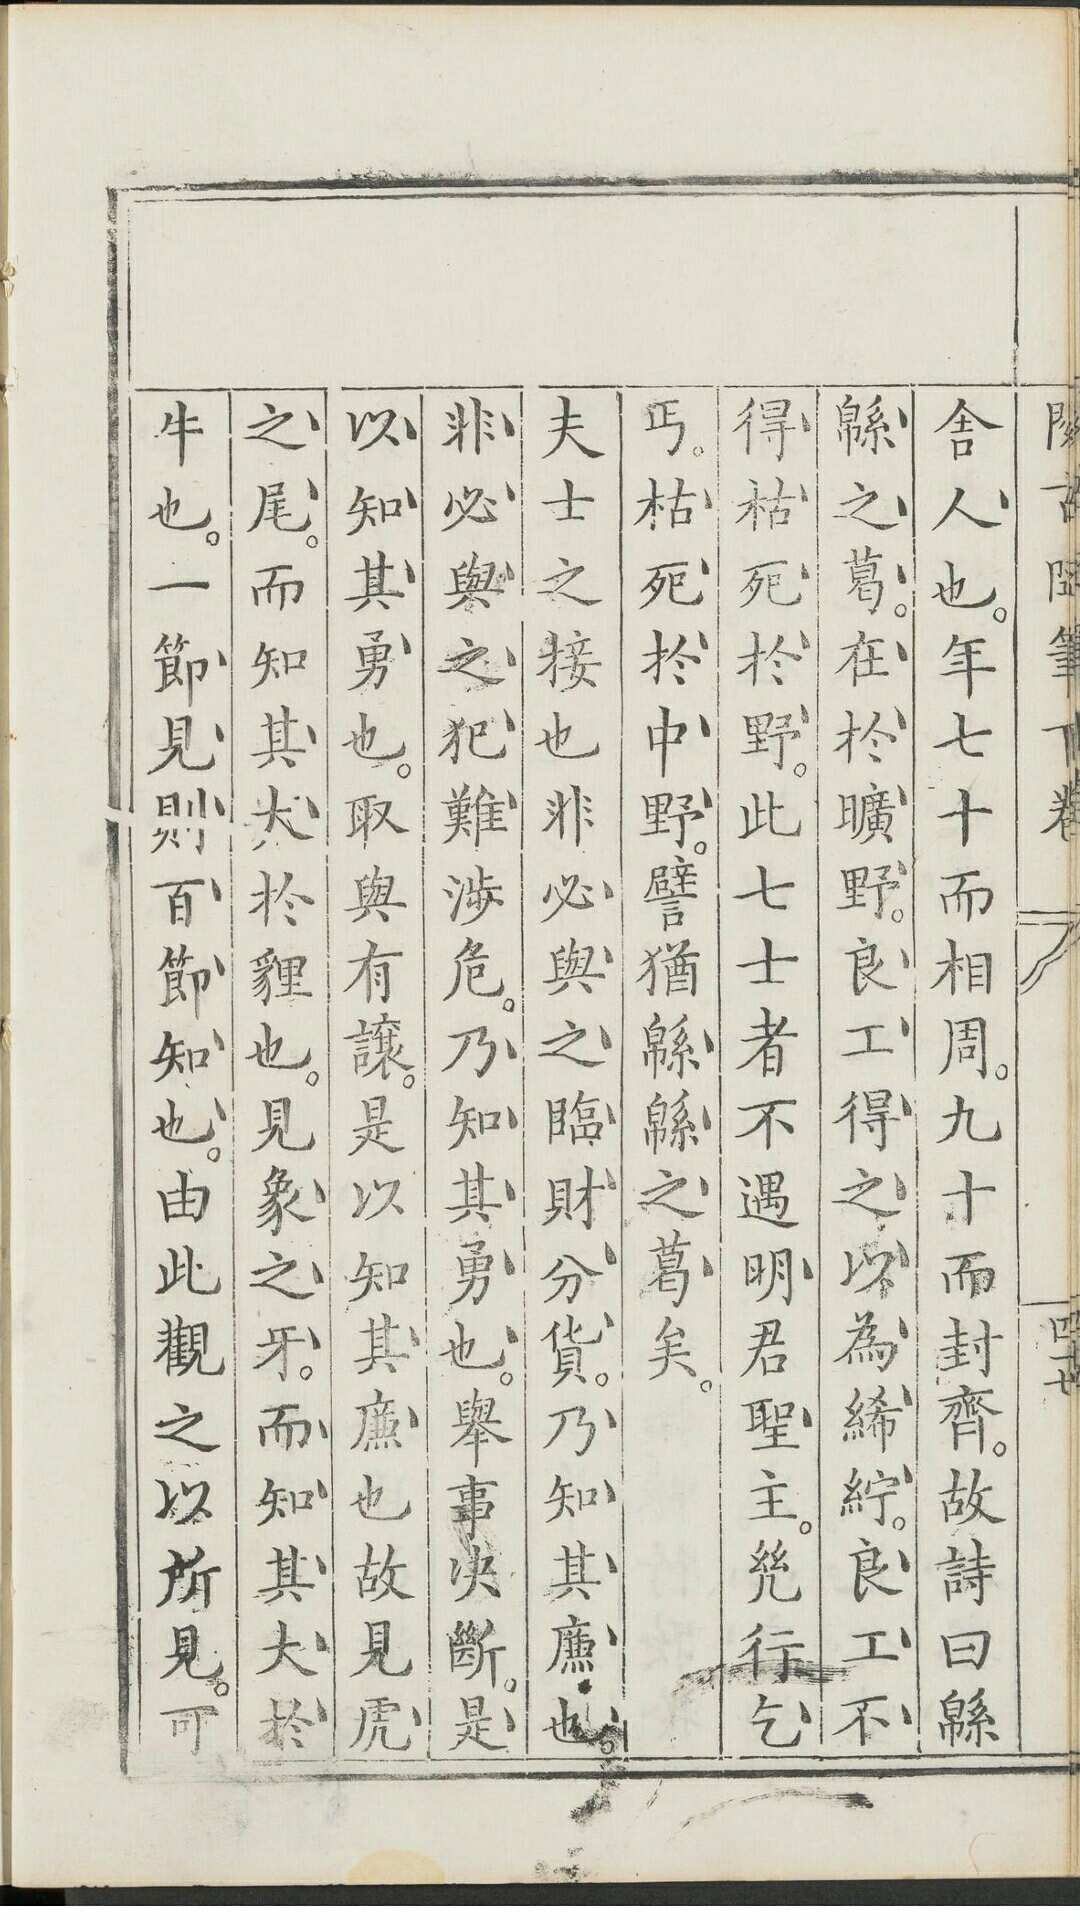 筆下卷
四十七
舍人也。年七十而相周。九十而封齊。故詩曰緜
緜之葛。在於曠野。良工得之以為絺綌。良工不
得枯死於野。此七士者不遇明君聖主。幾行乞
丐。枯死於中野。譬猶緜緜之葛矣。
夫士之接也非必與之臨財分貨。乃知其廉也。
非必與之犯難涉危。乃知其勇也。舉事决斷。是
以知其勇也。取與有讓。是以知其廉也故見虎
之尾。而知其大於貍也。見象之牙。而知其大於
牛也。一節見則百節知也。由此觀之以所見。可